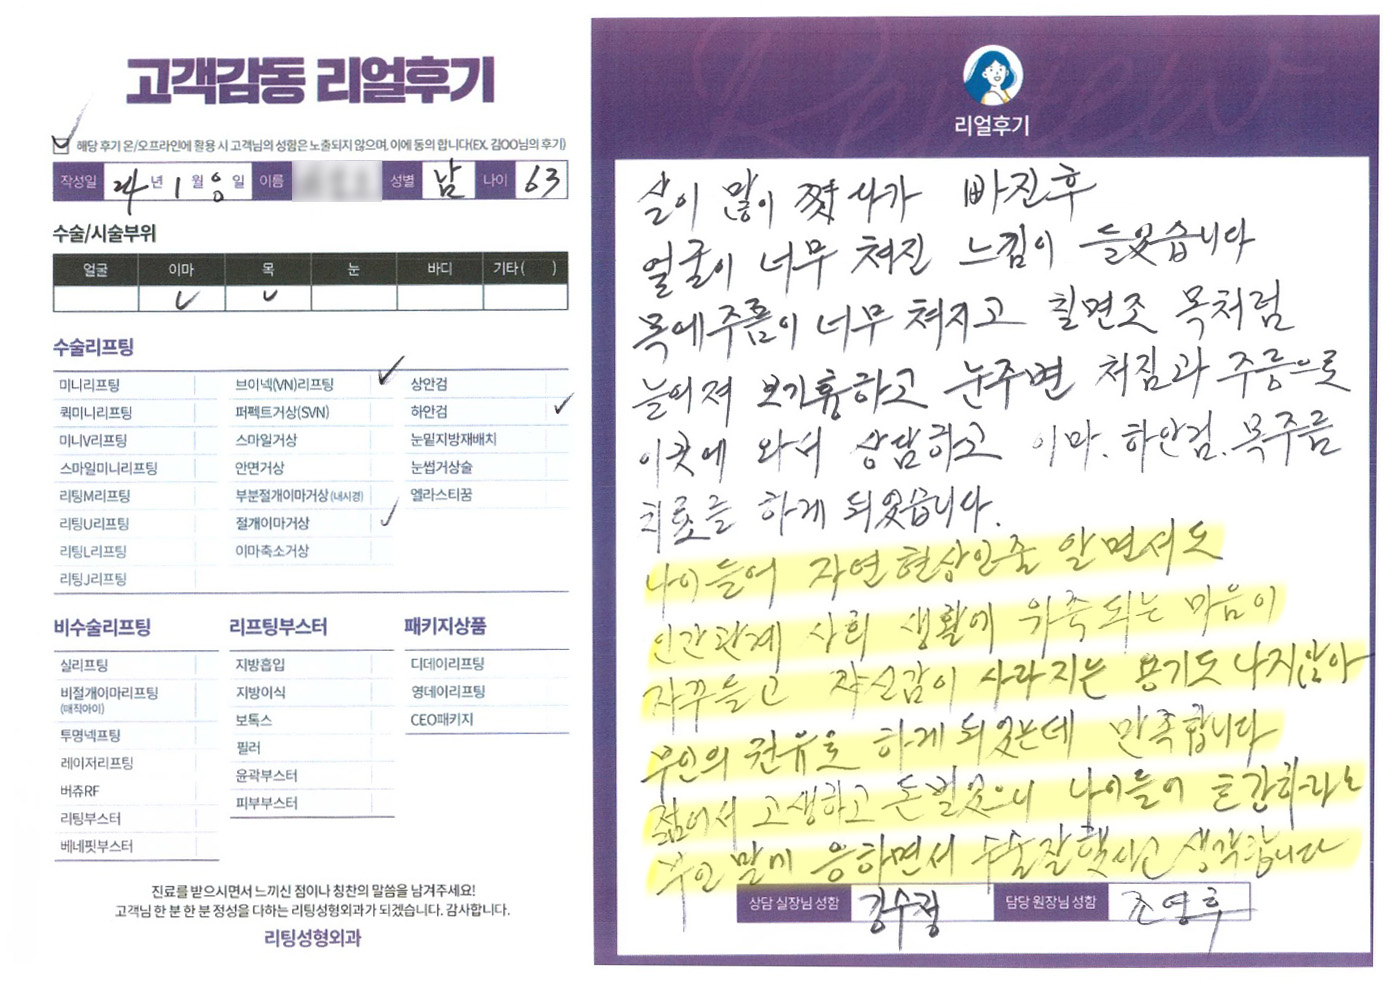 고객감동 리얼후기
해당 후기 온/오프라인에 활용 시 고객님의 성함은 노출되지 않으며, 이에 동의 합니다(EX. 김OO님의 후기)
작성일 24년 1월 일 이름 성별 남 나이 63
수술/시술부위
얼굴 이마 목 눈 바디 기타 ( )
수술리프팅
미니리프팅 브이넥(VN)리프팅 상안검
퀵미니리프팅 퍼펙트거상(SVN) 하안검
미니V리프팅 스마일거상 눈밑지방재배치
스마일미니리프팅 안면거상 눈썹거상술
리팅M리프팅 부분절개이마거상(내시경) 엘라스티꿈
리팅U리프팅 절개이마거상
리팅L리프팅 이마축소거상
리팅J리프팅
비수술리프팅 리프팅부스터 패키지상품
실리프팅 지방흡입 디데이리프팅
비절개이마리프팅 지방이식 영데이리프팅
(매직아이)
보톡스 CEO패키지
투명넥프팅 필러
레이저리프팅 윤곽부스터
버츄RF 피부부스터
리팅부스터
베네핏부스터
진료를 받으시면서 느끼신 점이나 칭찬의 말씀을 남겨주세요!
고객님 한 분 한 분 정성을 다하는 리팅성형외과가 되겠습니다. 감사합니다.
리팅성형외과
Review
리얼후기
살이 많이 쪘다가 빠진후
얼굴이 너무 쳐진 느낌이 들었습니다
목에주름이 너무 쳐지고 칠면조 목처럼
늘어져 보기흉하고 눈주변 처짐과 주름으로
이곳에 와서 상담하고 이마. 하안검. 목주름
치료를 하게 되었습니다.
나이들어 자연현상인줄 알면서도
인간관계 사회 생활에 위축되는 마음이
자꾸들고 자신감이 사라지는 용기도 나지않아
부인의 권유로 하게되었는데 만족합니다
젊어서 고생하고 돈벌었으니 나이들어 하라는
부인 말에 응하면서 수술잘했다고 생각합니다
상담 실장님 성함 강수정 담당 원장님 성함 조영후